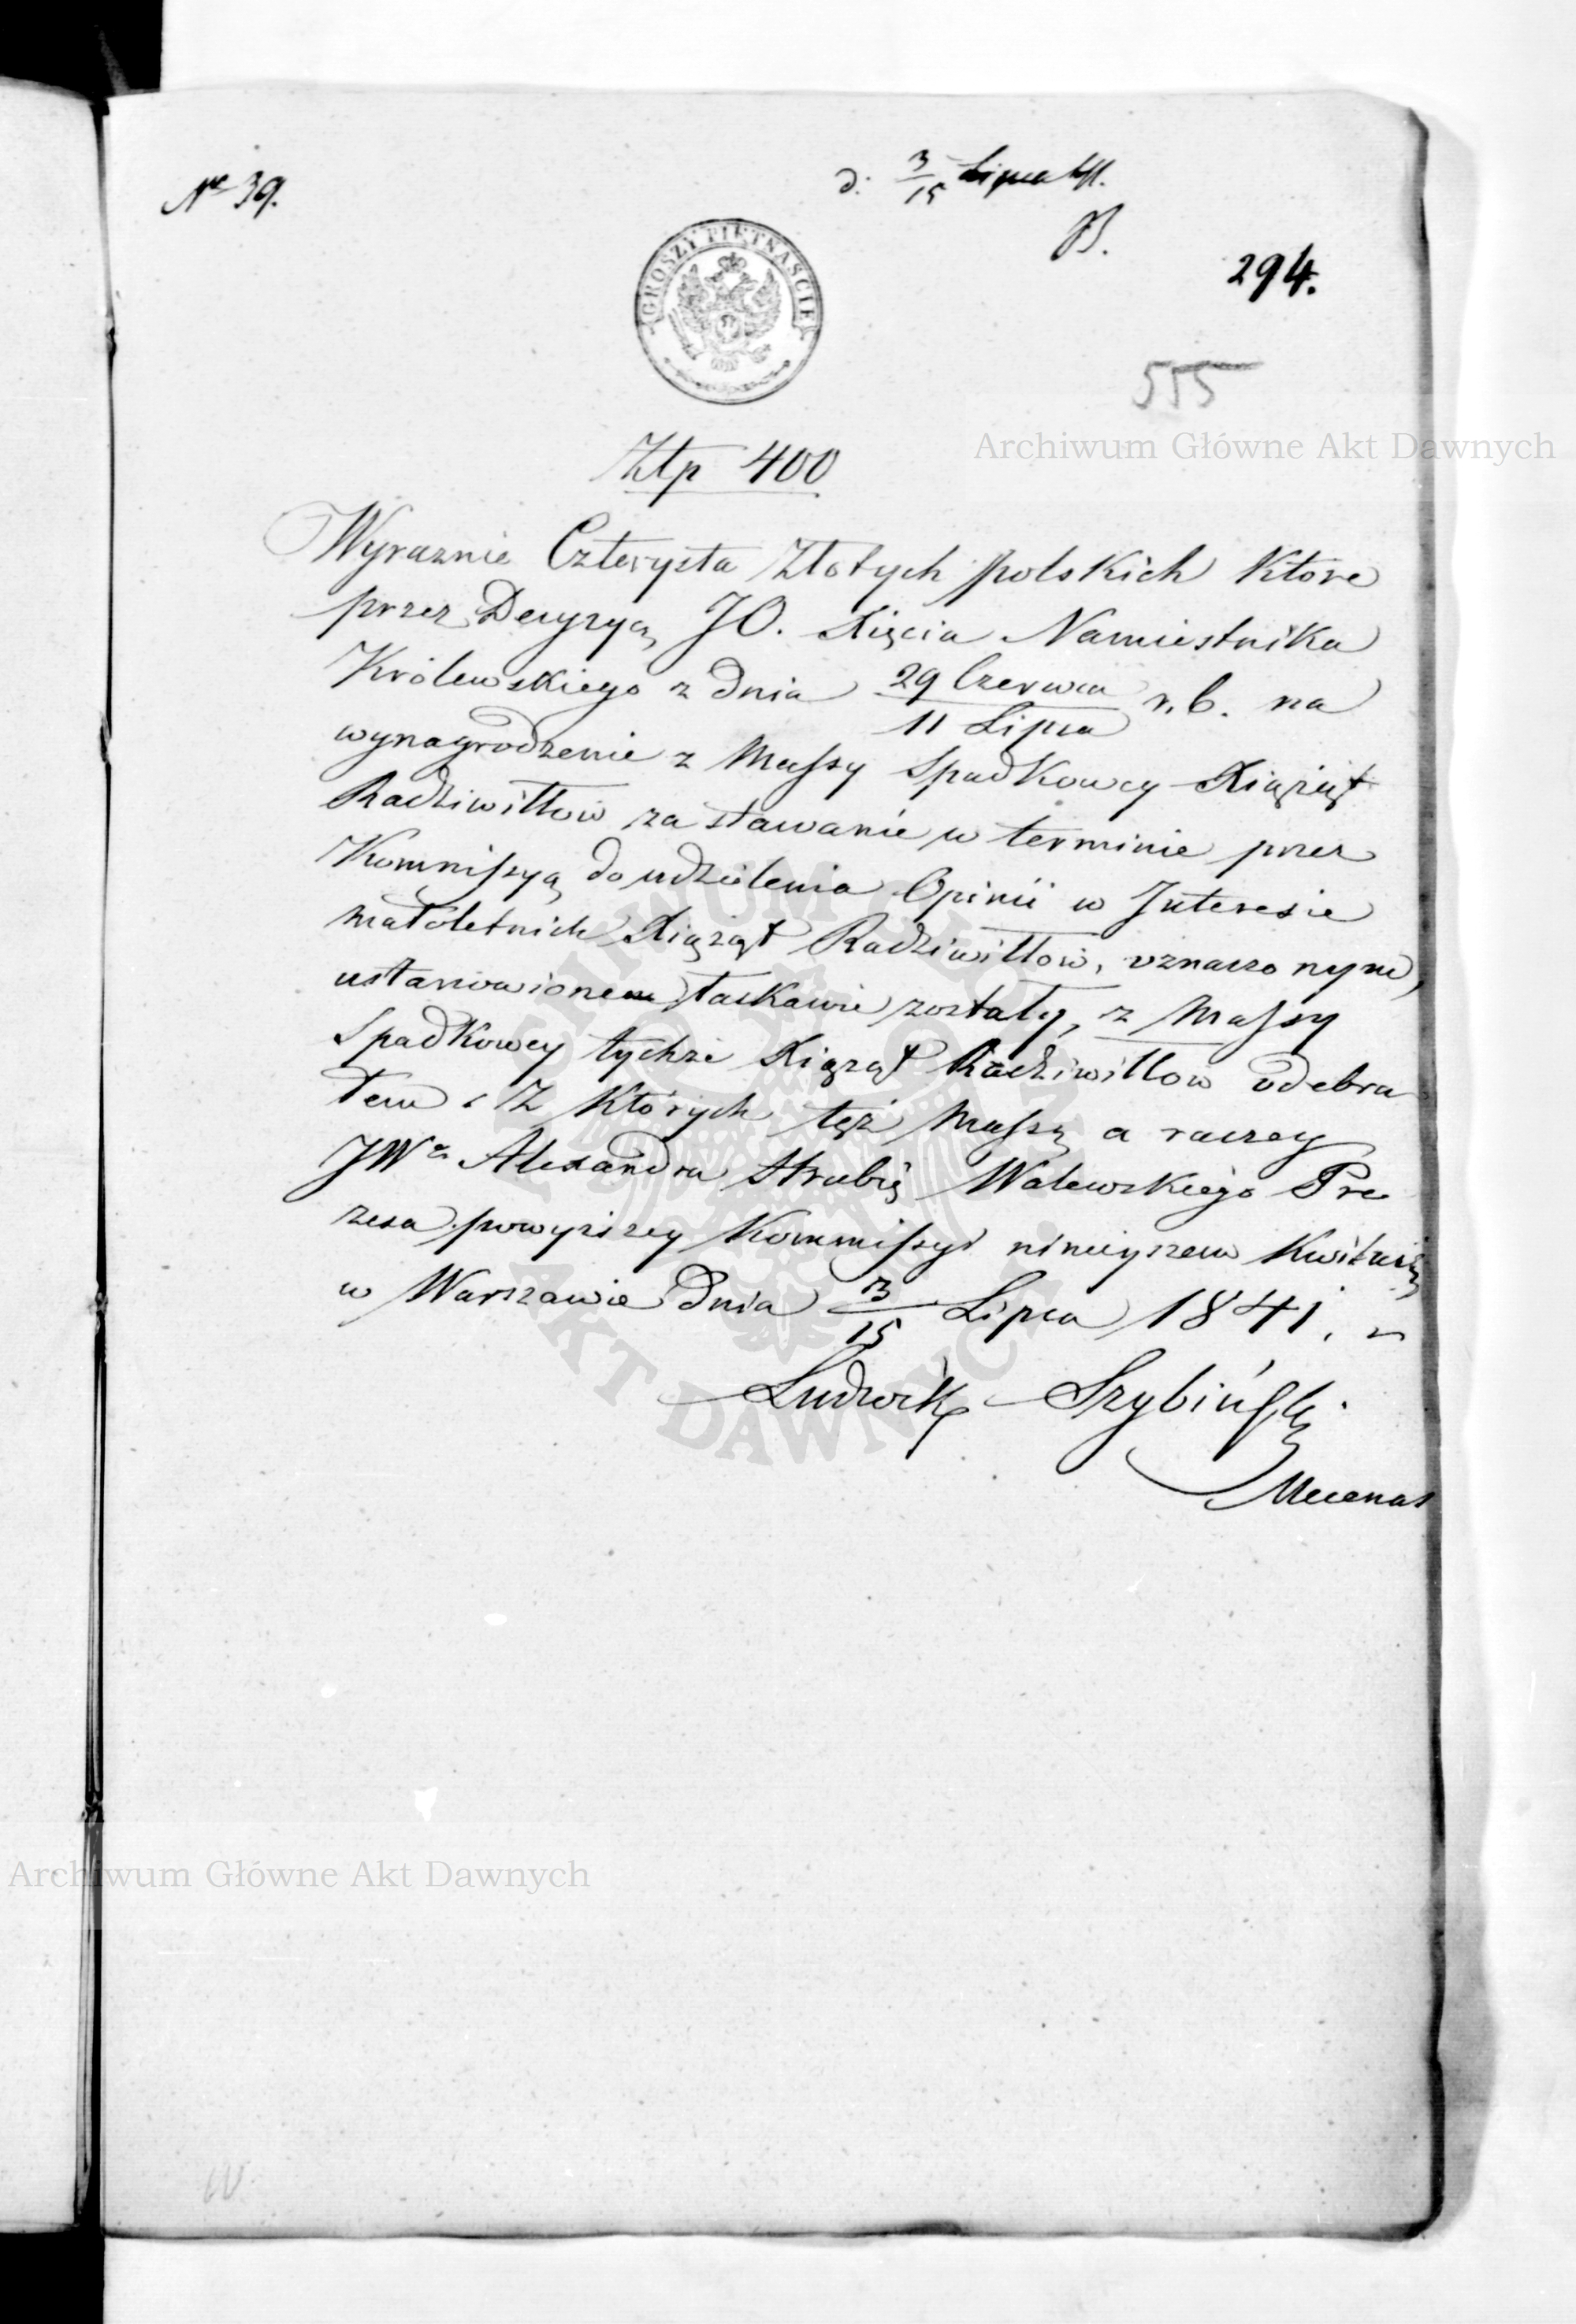 No 39.
d. 3/15 Lipca 41.
B.
GROSZY PIĘTNAŚCIE
294.
555
Archiwum Główne Akt Dawnych
Złp 400
Wyraznie Czterysta Złotych polskich które
przez Decyzyą JO. Xięcia Namiestnika
Królewskiego z dnia 29 Czerwca / 11 Lipca r. b. na
wynagrodzenie z Massy Spadkowey Xiążąt
Radziwiłłow za stawanie w terminie przez
Kommissyą do udzielenia Opinii w Interesie
małoletnich Xiążąt Radziwiłłow, oznaczonym,
ustanowionem łaskawie zostały, z Massy
Spadkowey tychże Xiążąt Radziwiłłow odebra
łem i z których też Massę a raczey
JWo Alexandra Hrabię Walewskiego Pre
zesa powyższey Kommissyi ninieyszem kwituię
w Warszawie dnia 3/15 Lipca 1841.
Ludwik Szybiński
Mecenas
ARCHIWUM GŁÓWNE AKT DAWNYCH
Archiwum Główne Akt Dawnych